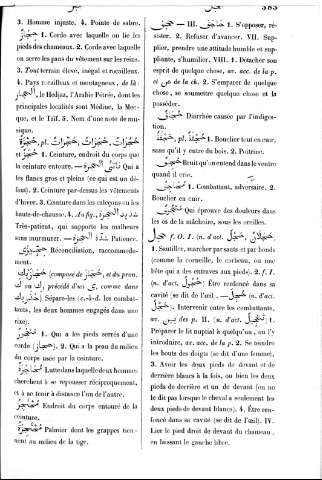 حجل
383
3. Homme injuste. 4. Pointe de sabre.
حِجَازٌ 1. Corde avec laquelle on lie les
pieds des chameaux. 2. Corde avec laquelle
on serre les pans du vêtement sur les reins.
3. Tout terrain élevé, inégal et rocailleux.
4. Pays rocailleux et montagneux, de là:
الحِجَازُ le Hedjaz, l'Arabie Pétrée, dont les
principales localités sont Médine, la Mec-
que, et le Taïf. 5. Nom d'une note de mu-
sique.
حُجْزَةٌ, pl.
1. Ceinture, endroit du corps que
la ceinture entoure. Qui a
les flancs gros et pleins (ce qui est un dé-
faut). 2. Ceinture par-dessus les vêtements
d'hiver. 3. Ceinture dans les caleçons ou les
haute-de-chausse. 4. Au fig., شديد الحجزة
Très-patient, qui supporte les malheurs
sans murmurer. — شدة الحجزة Patience.
Réconciliation, raccommode-
ment.
(composé de et du pron.
ك ou ك, précédé d'un ى, comme dans
Sépare-les (c.-à-d. les combat-
tants, les deux hommes engagés dans une
rixe).
1. Qui a les pieds serrés d'une
corde (حجاز). 2. Qui a la peau du milieu
du corps usée par la ceinture.
Lutte dans laquelle deux hommes
cherchent à se repousser réciproquement,
et à se tenir à distance l'un de l'autre.
Endroit du corps entouré de la
ceinture.
Palmier dont les grappes tien-
nent au milieu de la tige.
— III. 1. S'opposer, ré-
sister. 2. Refuser d'avancer. VII. Sup-
plier, prendre une attitude humble et sup-
pliante, s'humilier. VIII. 1. Détacher son
esprit de quelque chose, av. acc. de la p.
et de la ch. 2. S'emparer de quelque
chose, se soumettre quelque chose et la
posséder.
Diarrhée causée par l'indiges-
tion.
حَجَفَةٌ, pl. حَجَفٌ 1. Bouclier tout en cuir,
sans qu'il y entre du bois. 2. Poitrine.
حَجِيفٌ Bruit qu'on entend dans le ventre
quand il crie.
1. Combattant, adversaire. 2.
Bouclier en cuir.
Qui éprouve des douleurs dans
les os de la mâchoire, sous les oreilles.
حجل f. O. I. (n. d'act. حَجْلٌ, حَجَلَانٌ)
1. Sautiller, marcher par sauts et par bonds
(comme la corneille, le corbeau, ou une
bête qui a des entraves aux pieds). 2. f. I.
(n. d'act. حَجْلٌ) Être renfoncé dans sa
cavité (se dit de l'œil. — (n. d'act.
حَجْلٌ) Intervenir entre les combattants,
av. بين des p. II. (n. d'act. تَحْجِيلٌ) 1.
Préparer le lit nuptial à quelqu'un, ou l'y
introduire, av. acc. de la p. 2. Se teindre
les bouts des doigts (se dit d'une femme).
3. Avoir les deux pieds de devant et de
derrière blancs à la fois, ou bien les deux
pieds de derrière et un de devant (on ne
le dit pas lorsque le cheval a seulement les
deux pieds de devant blancs). 4. Être ren-
foncé dans sa cavité (se dit de l'œil). IV.
Lier le pied droit de devant du chameau,
en laissant le gauche libre.